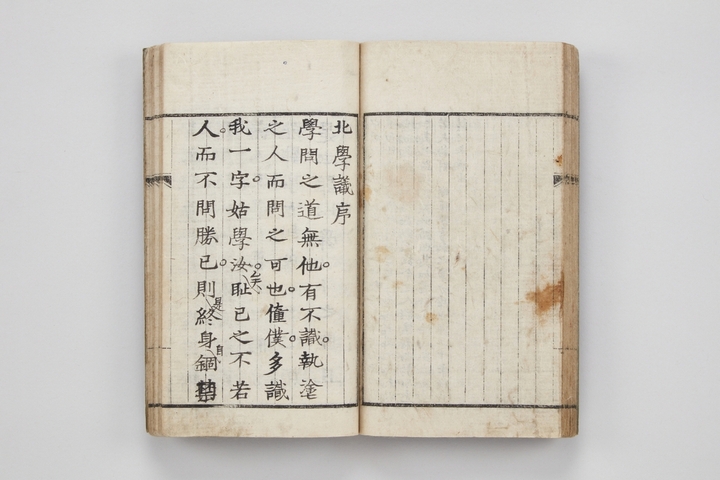 北學議序
學問之道無他有不識執塗
之人而問之可也僮僕多識
我一字姑學汝耻己之不若
人而不問勝己則是終身自錮